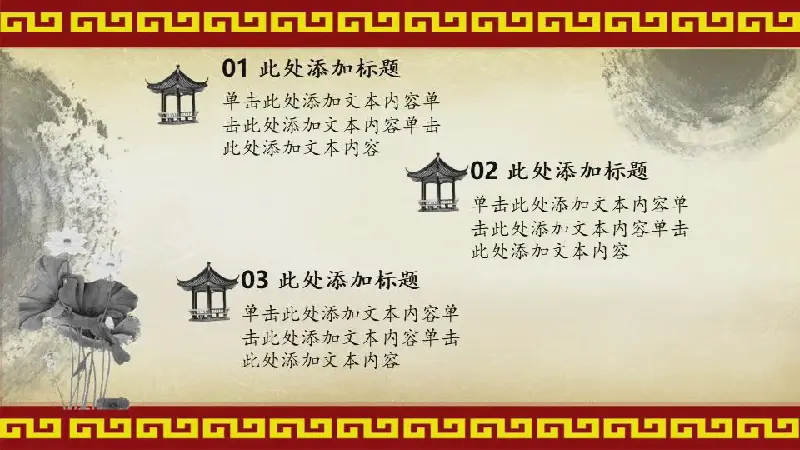 01 此处添加标题
单击此处添加文本内容单
击此处添加文本内容单击
此处添加文本内容
02 此处添加标题
单击此处添加文本内容单
击此处添加文本内容单击
此处添加文本内容
03 此处添加标题
单击此处添加文本内容单
击此处添加文本内容单击
此处添加文本内容